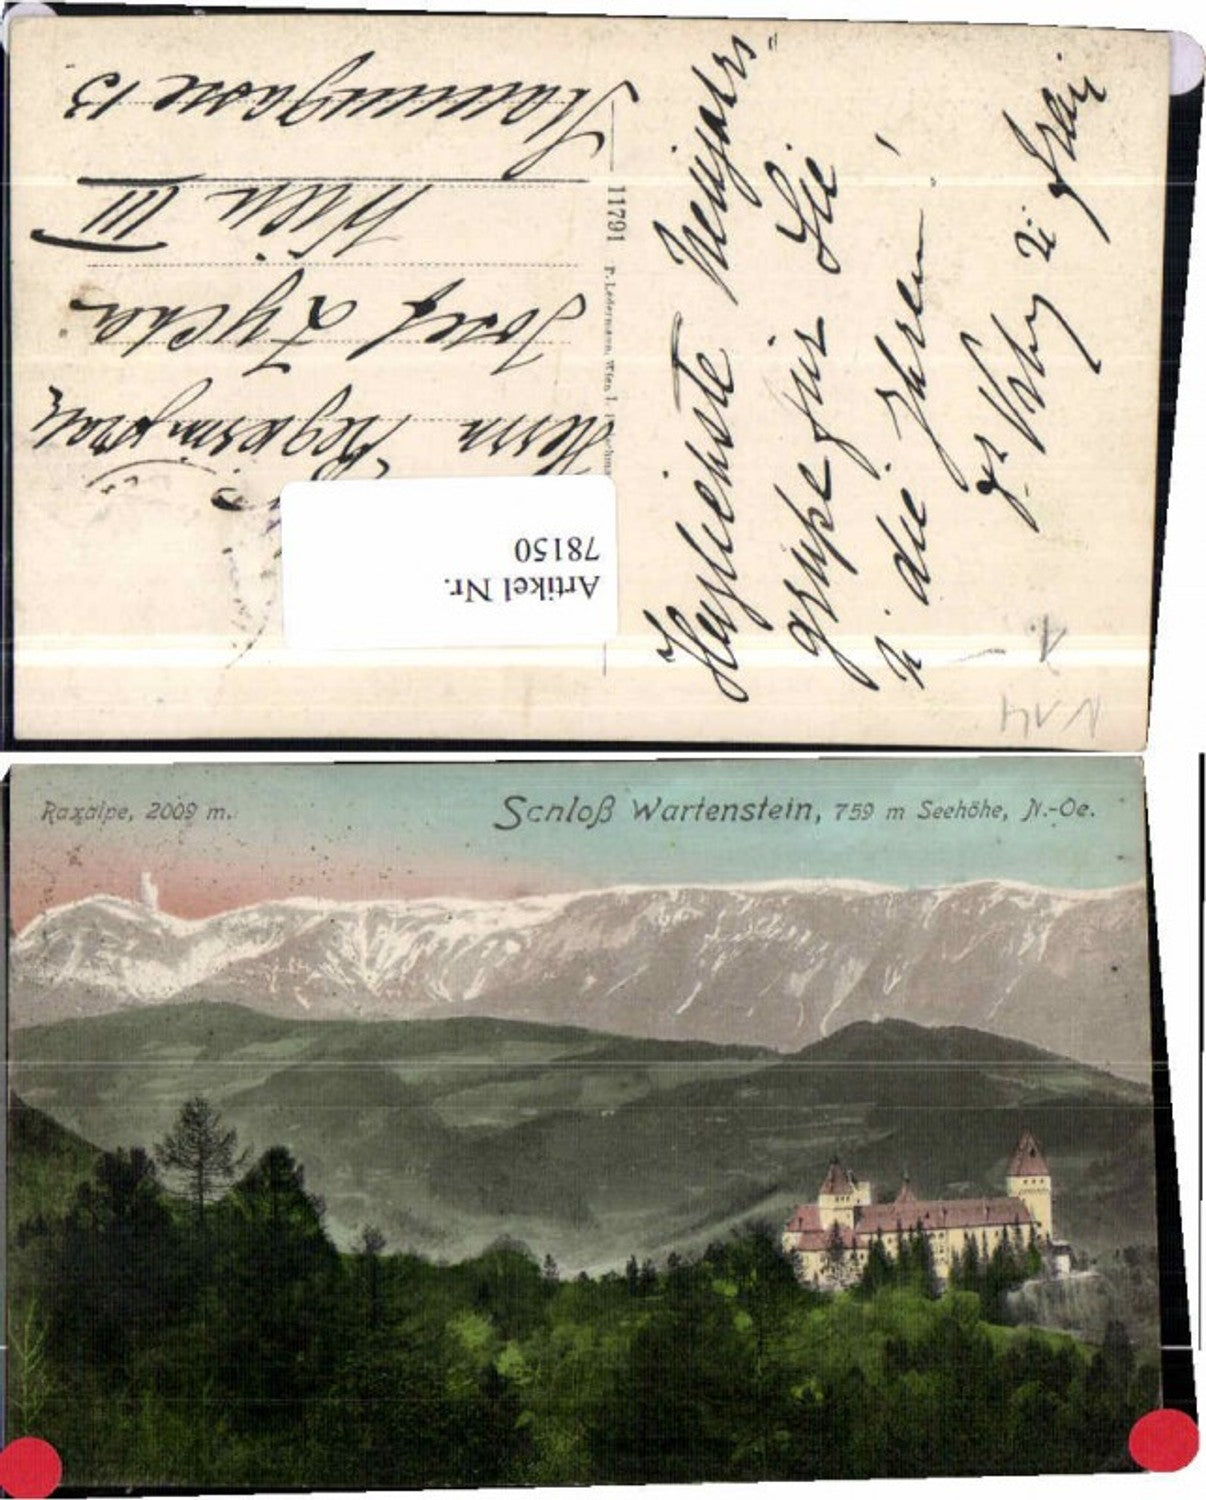 Herzlichste Neujahrs-
grüße für Sie
u. die Ihren
11791 P. Ledermann, Wien I.
Herrn
Josef Zycha
Wien III
13
Artikel Nr.
78150
Raxalpe, 2009 m.
Schloß Wartenstein, 759 m Seehöhe, N.-Oe.